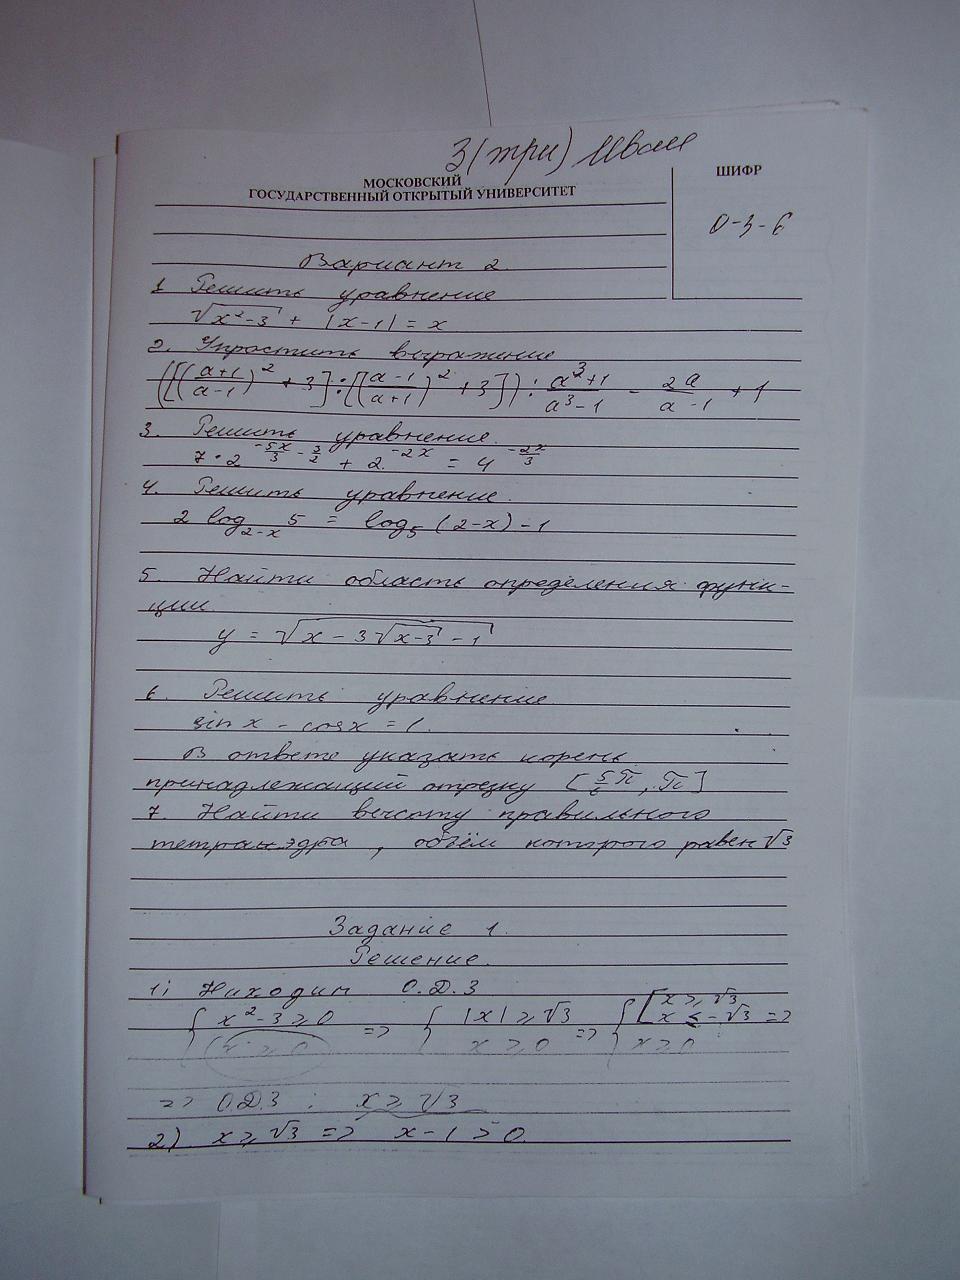 3 (три)
МОСКОВСКИЙ
ГОСУДАРСТВЕННЫЙ ОТКРЫТЫЙ УНИВЕРСИТЕТ
ШИФР
0-3-6
Вариант 2.
1 Решить уравнение
√(x²-3) + |x-1| = x
2. Упростить выражение
([((a+1)/(a-1))² + 3] : [((a-1)/(a+1))² + 3]) : (a³+1)/(a³-1) - 2a/(a-1) + 1
3. Решить уравнение.
7 · 2^(-5x/3 - 3/2) + 2^(-2x) = 4^(-2x/3)
4. Решить уравнение.
2 log_(2-x) 5 = log_5 (2-x) - 1
5. Найти область определения функ-
ции.
y = √(x - 3√(x-3) - 1)
6. Решить уравнение
sin x - cos x = 1.
В ответе указать корень,
принадлежащий отрезку [5/6 π, π]
7. Найти высоту правильного
тетраэдра, объём которого равен √3
Задание 1.
Решение.
1) Находим О.Д.З
{ x² - 3 ≥ 0 => { |x| ≥ √3 => { [ x ≥ √3
x ≤ -√3 =>
x ≥ 0 x ≥ 0 x ≥ 0
=> О.Д.З : x ≥ √3
2) x ≥ √3 => x - 1 > 0.